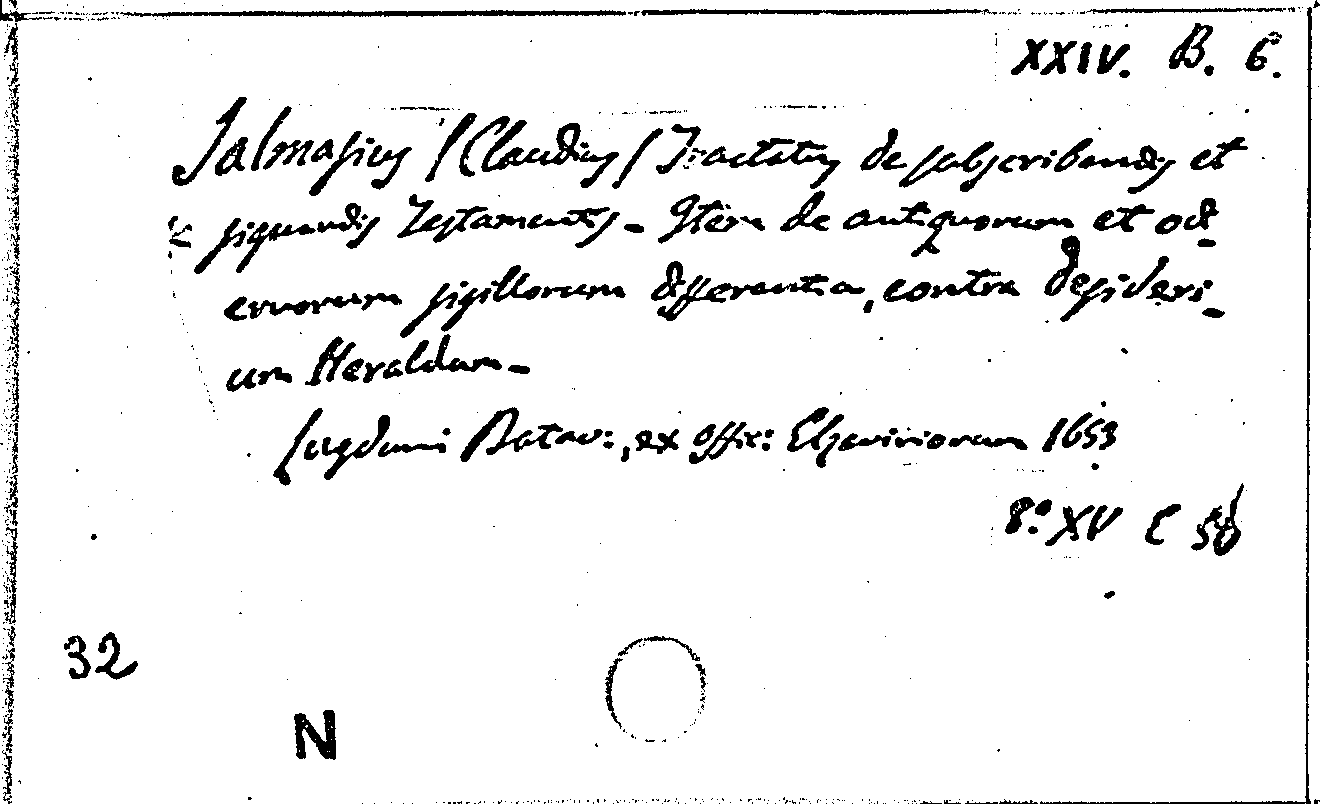 XXIV. B. 6.
Salmasius /Claudius/ Tractatus de subscribendis et
signandis Testamentis. Item de antiquorum et odi-
ernorum sigillorum differentia, contra Desideri-
um Heraldum.
Lugduni Batav:, ex offic: Elzeviriorum 1653
8.º XV C
32
N